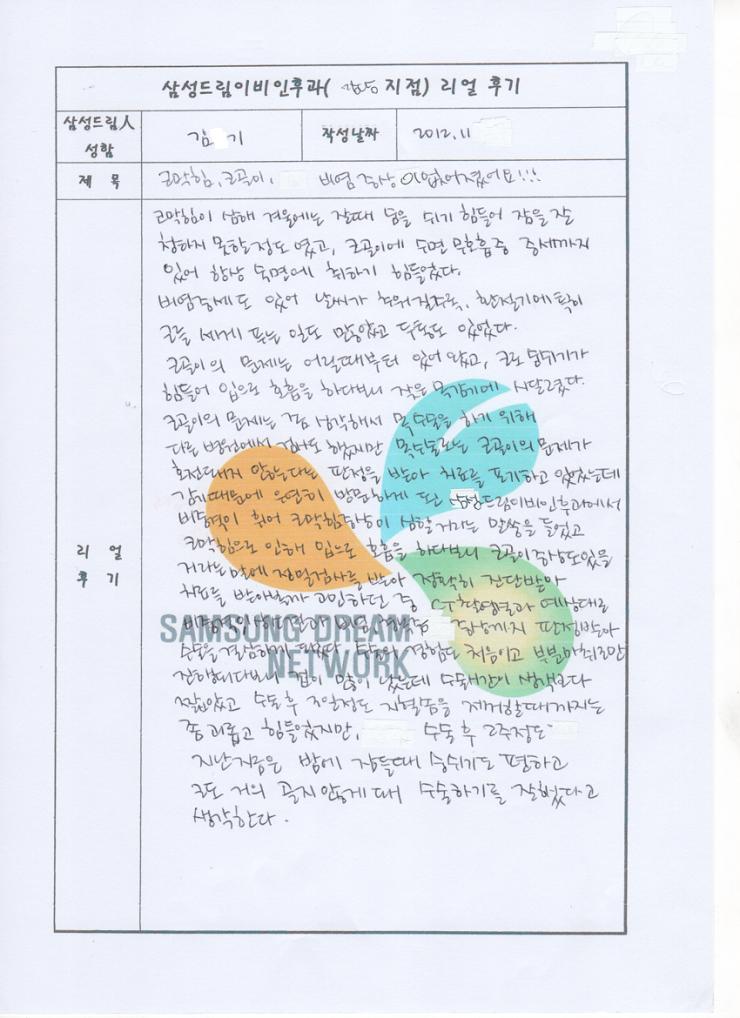 삼성드림이비인후과( 강남 지점) 리얼 후기
삼성드림人 성함
김 기
작성날짜
2012.11
제 목
코막힘, 코골이, 비염증상이 없어졌어요!!!
리 얼 후 기
코막힘이 심해 겨울에는 잘때 숨을 쉬기 힘들어 잠을 잘
청하지 못할정도 였고, 코골이에 수면 무호흡증 증세까지
있어 항상 숙면에 취하기 힘들었다.
비염증세도 있어 날씨가 추워질수록, 환절기에 특히
코를 세게 푸는 일도 많았고 두통도 있었다.
코골이의 문제는 어릴때부터 있어 왔고, 코로 숨쉬기가
힘들어 입으로 호흡을 하다보니 잦은 목감기에 시달렸다.
코골이의 문제는 심각해서 목수술을 하기 위해
다른 병원에서 검사도 했었지만 목수술로는 코골이의 문제가
호전되지 않는다는 판정을 받아 치료를 포기하고 있었는데
감기때문에 우연히 방문하게 된 삼성드림이비인후과에서
비중격이 휘어 코막힘증상이 심할거라는 말씀을 들었고
코막힘으로 인해 입으로 호흡을 하다보니 코골이증상도 있을
거라는 말에 정밀검사를 받아 정확히 진단받아
치료를 받아볼까 고민하던 중 CT촬영결과 예상대로
증상까지 판정받아
수술을 결심하게 되었다. 수술의 경험도 처음이고 부분마취로만
진행된다보니 겁이 많이 났는데 수술시간이 생각보다
짧았고 수술후 3일정도 지혈솜을 제거할때까지는
좀 괴롭고 힘들었지만, 수술 후 2주정도
지난지금은 밤에 잠들때 숨쉬기도 편하고
코도 거의 골지않게 돼 수술하기를 잘했다고
생각한다.
SAMSUNG DREAM
NETWORK